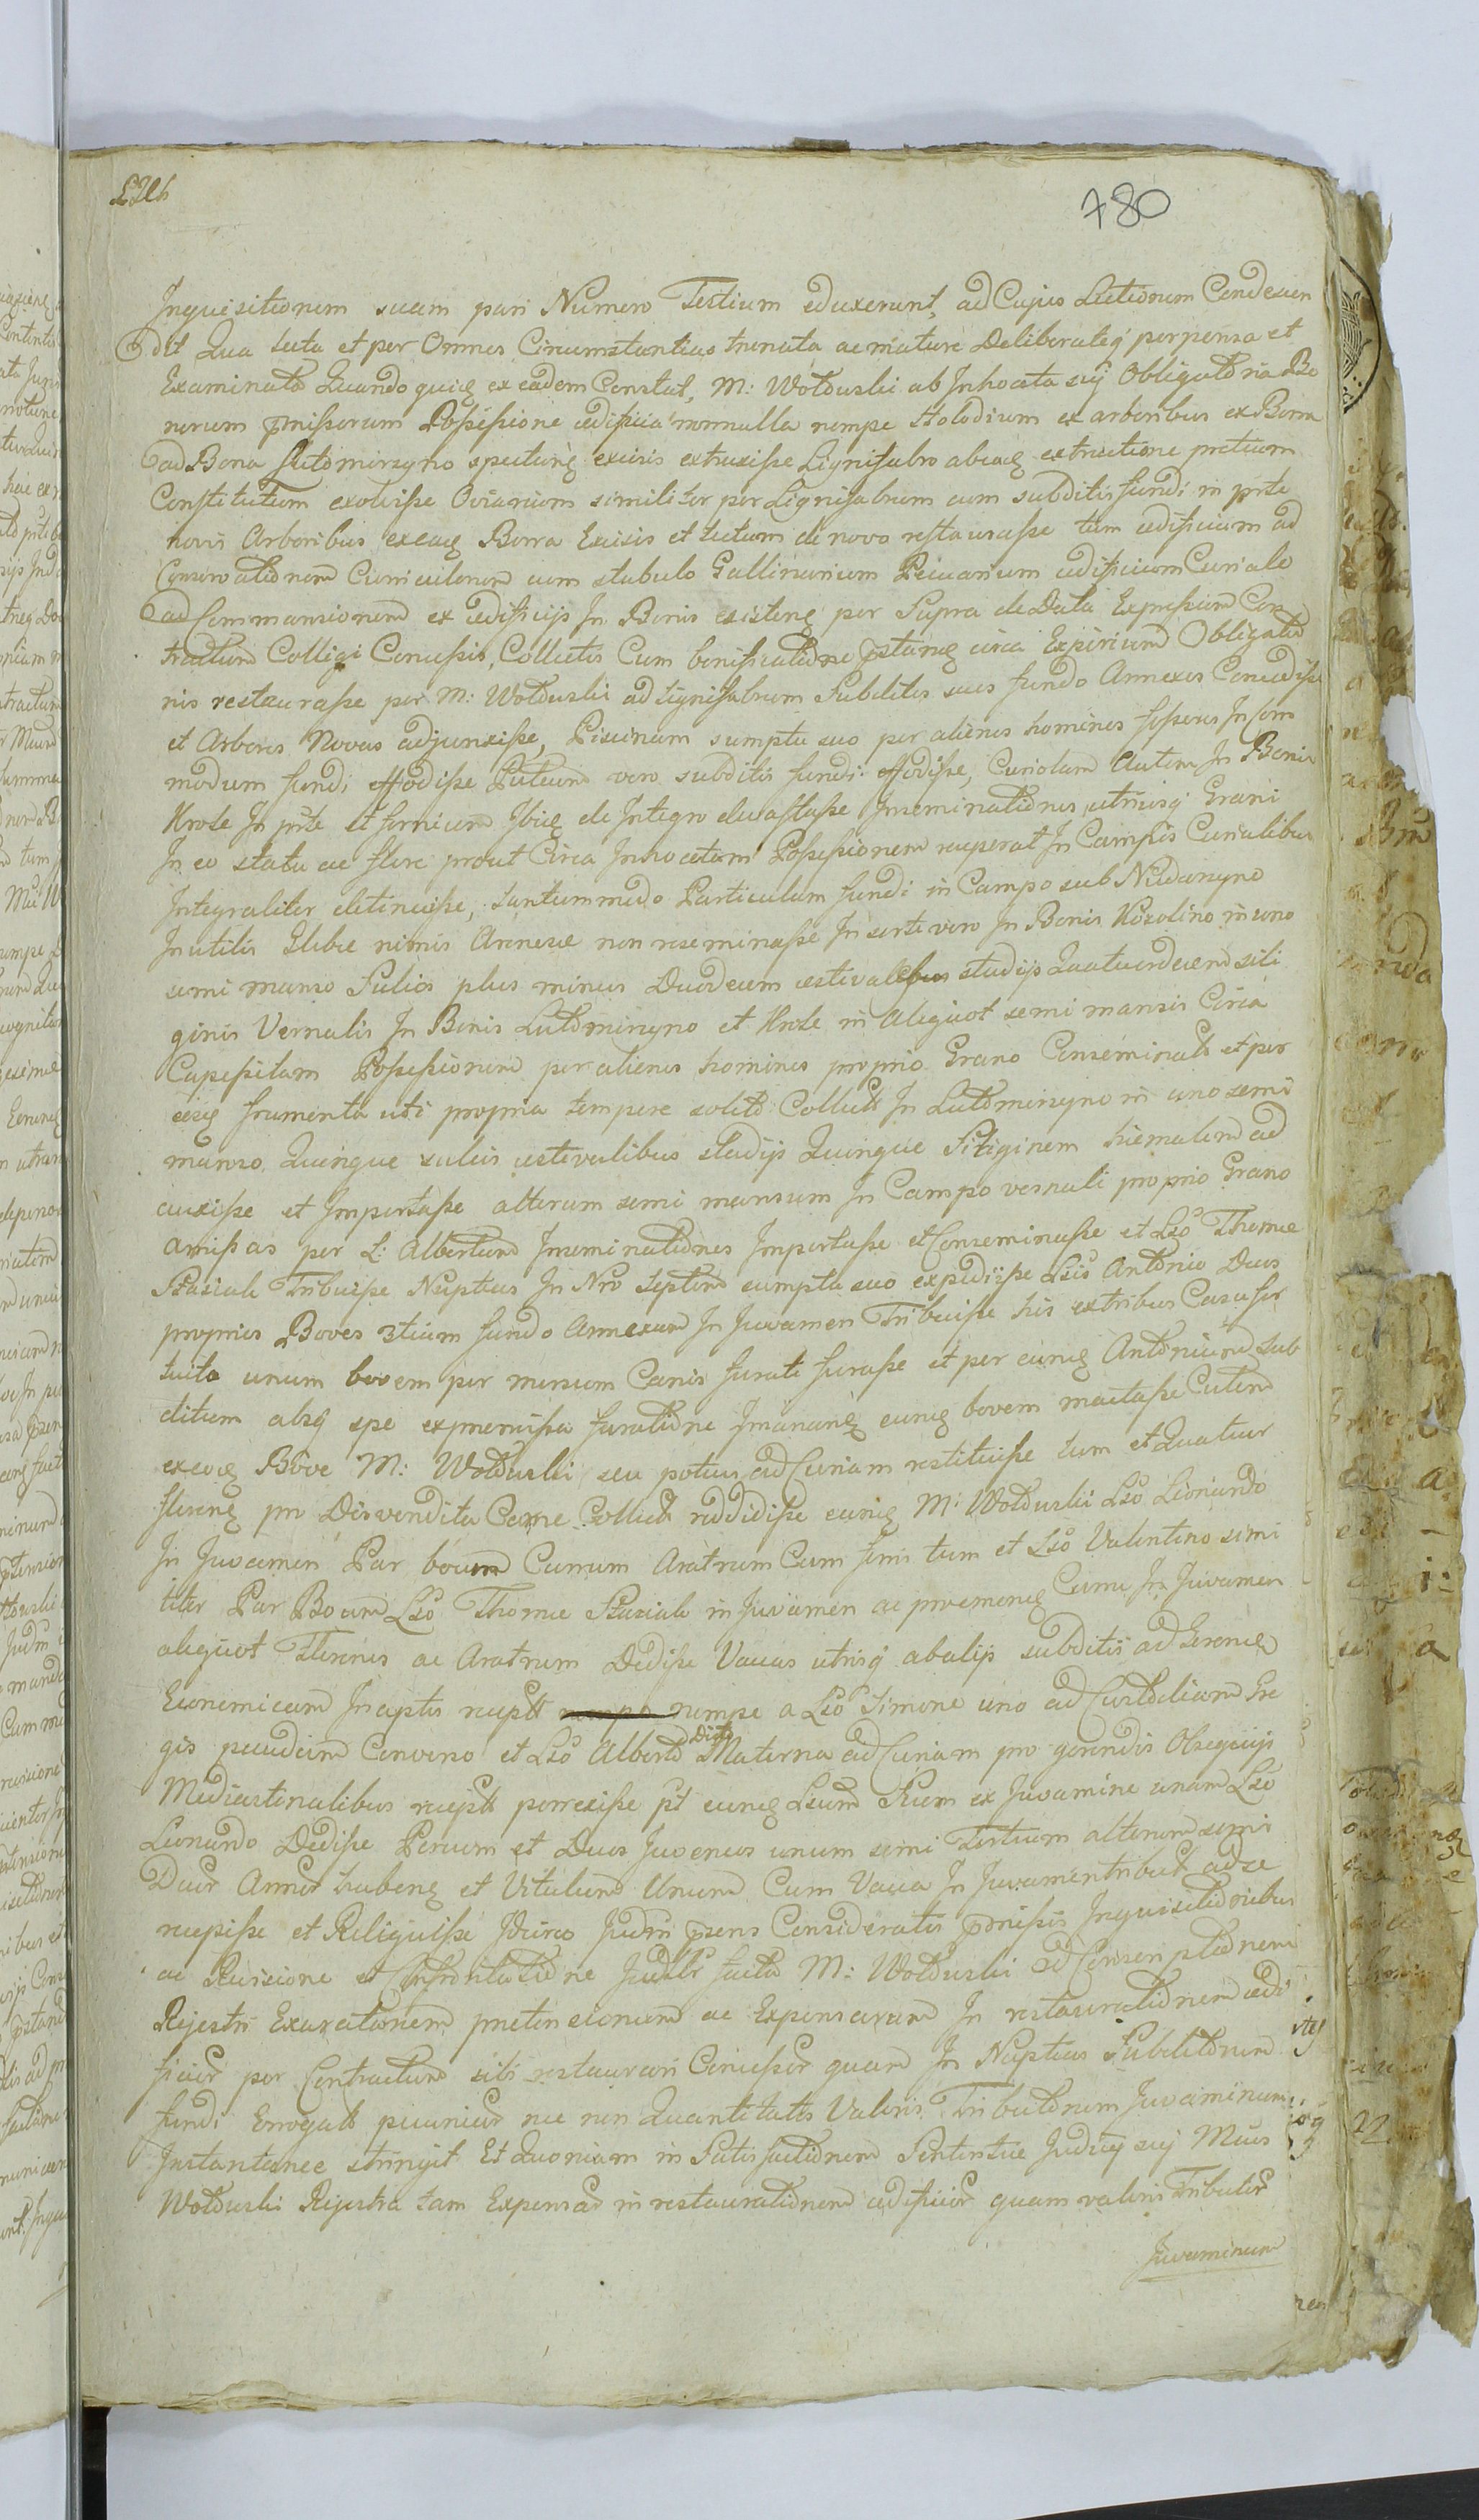 780
Inquisitionem suam pari Numero Testium eduxerunt, ad Cujus Lectionem Condescen
dit Qua lecta et per Omnes Circumstantias trenata ac mature Deliberateq perpensa et
Examinata Quando quidē ex eadem Constat, M: Wolduski ab Inhocata sui Obligatoria Bo
norum pmissorum Possessione ædificia nonnulla nempe Holodium ex arboribus ex Borra
ad Bona Lutomirzyno spectung excisis extruxisse Lignifabro abeadē extructione pretium
Constitutum exolvisse Oviarium similiter per Lignifabrum cum subditis fundi in pte
novis Arboribus exeadē Borra Excisis et tectum de novo restaurasse tum ædificium ad
Conservationem Cuniculorum cum stabulo Gallinarium Pecuarium ædificium Curiale
ad Commansionem ex ædificijs In Bonis existeng per Supra de Data Expressum Con
tractum Colligi Concessis, Collectis Cum bonificatione pstang circa Expirium Obligatio
nis restaurasse per M: Wolduski ad Lignifabrum Subditos suos fundo Annexos Concedisse
et Arbores Novas adjunxisse, Piscinam sumptu suo per alienos homines fossores In Com
modum fundi effodisse Puteum vero subditis fundi effodisse, Curiolam Autem In Bonis
Krole In pte et fornicem Ibidē de Integro devastasse Inseminationes utriusq Grani
In eo statu ac flore prout Circa Inhocatam Possessionem reperat In Campis Curialibus
Integraliter detinuisse, tantummodo Particulam fundi in Campo sub Niedanyno
Inutilis Glebæ nimis Annexæ non reseminasse In sorte vero In Bonis Kozolino in uno
semi manso Sulios plus minus Duodecim æstivalibus stadijs Quatuordecem sili
ginis Vernalis In Bonis Lutomirzyno et Krole in Aliquot semi mansis Circa
Capessitam Possessionem per alienos homines proprio Grano Conseminatis et per
eosdē frumenta uti propria tempore solito Collectis In Lutomirzyno in uno semi
manso Quinque sulcis æstivalibus stadijs Quinque Siliginem hiemalem ad
auxisse et Importasse alterum semi mansum In Campo vernali proprio Grano
Amissas per L: Albertum Inseminationes Importasse et Conseminasse et Lso Thomæ
Stasiak Tribuisse Nuptias In Nro Septem sumptu suo expediisse Lsis Antonio Duos
proprios Boves 3tium fundo Annexum In Juvamen Tribuisse his extribus Casu for
tuito unum bovem per morsum Canis furati furasse et per eundē Antonium sub
ditum absq spe expremissa furatione Imanang eundē bovem mactasse Cutem
exeodē Bove M: Wolduski seu potius ad Curiam restituisse tum et Quatuor
floreng pro Divendita Carne Collectis reddidisse eundē M: Wolduskii Lso Leonardo
In Juvamen Par boum Currum Aratrum Cum ferris tum et Lso Valentino simi
liter Par Boum Lso Thomæ Stasiak in Juvamen ac promenendē Curru In Juvamen
aliquot Florenos ac Aratrum Dedisse Vaccas utrisq abalijs subditis ad Gerendē
Economicam Inaptis receptis nempe a Lso Simone uno ad Custodiam Gre
gis pecudum Converso et Lso Alberto Dicto Materna ad Curiam pro gerendis Obsequijs
Mediastinalibus receptis porrexisse pt eundē Lsum Suum ex Juvamine unam Lso
Leonardo Dedisse Porcum et Duos Juvencos unum semi Tertium alterum semi
Duos Annos habeng et Vitulum Unum Cum Vacca In Juvamen tributis ad se
recepisse et Reliquisse Idcirco Judm psens Consideratis pmissis Inquisitionibus
ac Revisione et Confrontatione Judlr facta M: Wolduski ad Conscriptionem
Rejestri Exaratorem pretensionum ac Expensarum In restaurationem ædi
ficior per Contractum sibi restaurari Concessor quam In Nuptias Subditorum
fundi Erogatis pecunior nec non Quantitatis Valoris Tributorum Juvaminum
Instantanee stringit Et Quoniam in Satisfactionem Sententiæ Judicij sui Mcus
Wolduski Rejestra tam Expensar in restaurationem ædificior quam valoris Tributor
Juvaminum